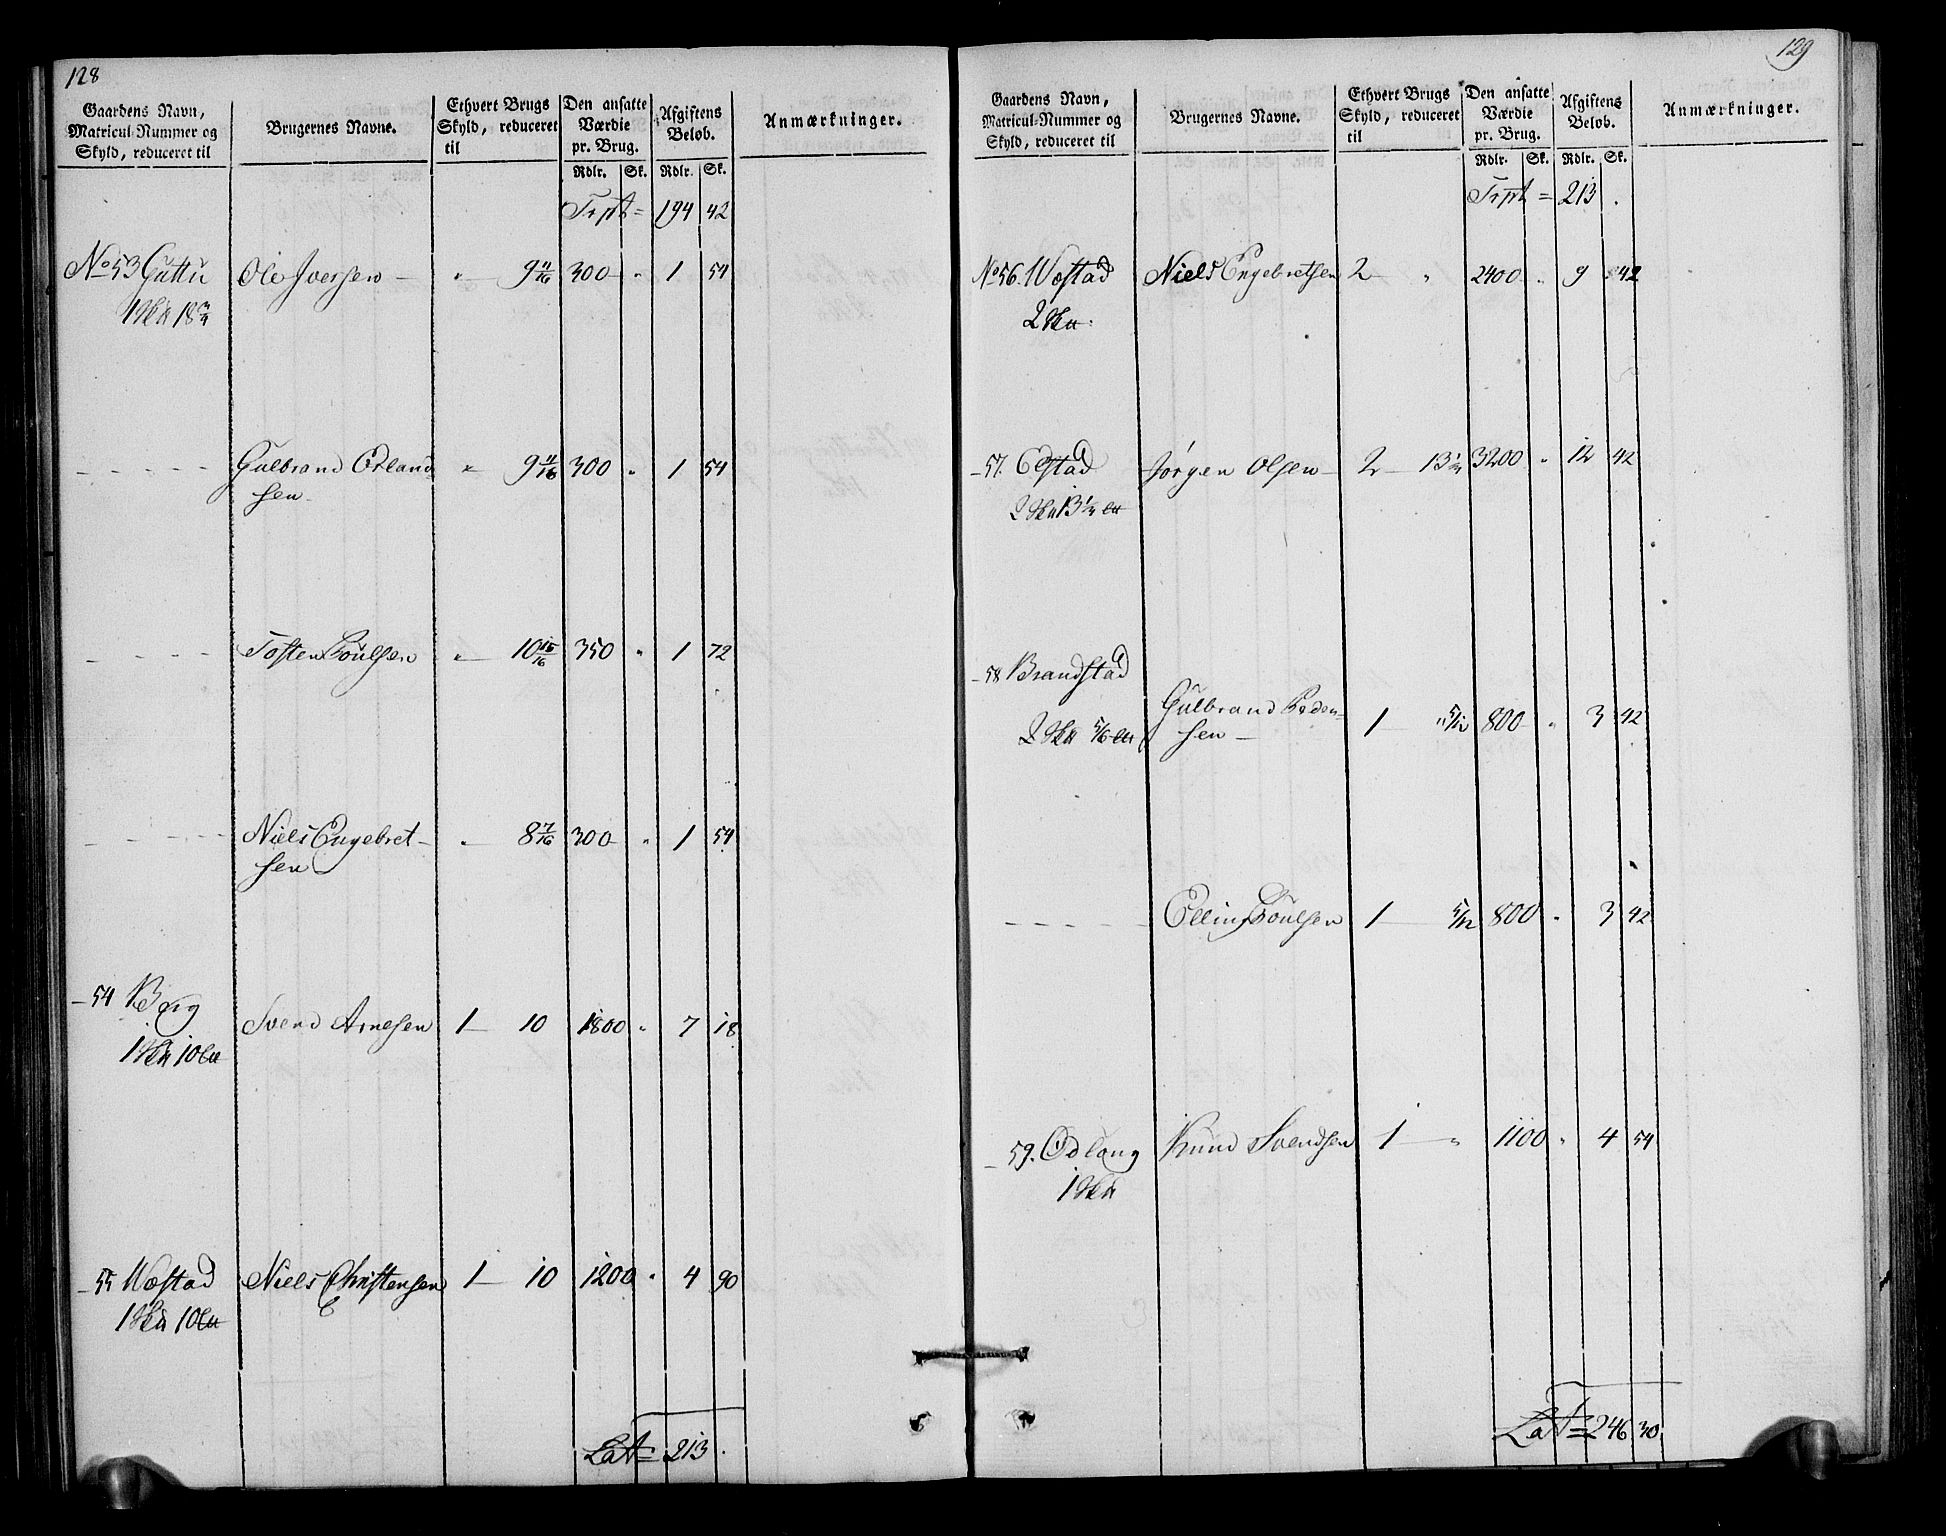 128
Gaardens Navn, Matricul-Nummer og Skyld, reduceret til | Brugernes Navne. | Ethvert Brugs Skyld, reduceret til | Den ansatte Værdie pr. Brug. | Afgiftens Beløb. | Anmærkninger.
Rdlr. | Sk. | Rdlr. | Sk.
Trpt = 194 42
No 53 Guttu Ole Iversen — " 9 11/16 300 " 1 54
18 3/4
Gulbrand Erland- " 9 11/16 300 " 1 54
sen
Tosten Poulsen " 10 15/16 350 " 1 72
Niels Engebret- " 8 7/16 300 " 1 54
sen
54 Berg Svend Arnesen 1 10 1800 " 7 18
55 Wæstad Niels Christensen 1 10 1200 " 4 90
Lat = 213 .
129
Gaardens Navn, Matricul-Nummer og Skyld, reduceret til | Brugernes Navne. | Ethvert Brugs Skyld, reduceret til | Den ansatte Værdie pr. Brug. | Afgiftens Beløb. | Anmærkninger.
Rdlr. | Sk. | Rdlr. | Sk.
Trpt = 213 .
No 56. Wæstad Niels Engebretsen 2 " 2400 " 9 42
57. Jørgen Olsen 2 3200 " 12 42
58 Brandstad
Gulbrand Peder- 1 5/12 800 " 3 42
sen
Elling Poulsen 1 5/12 800 " 3 42
59. Odlaug Knud Svendsen 1 " 1100 " 4 54
Lat = 246 30